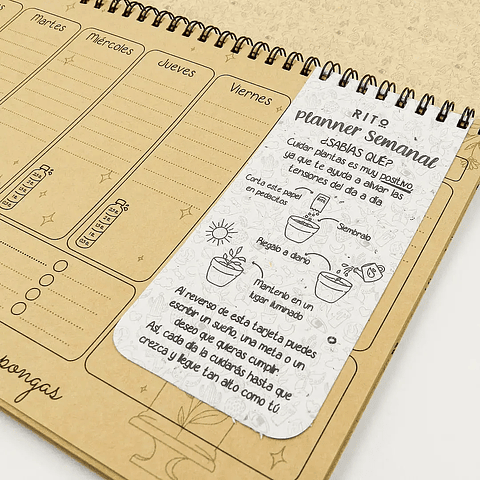 Martes
Miércoles
Jueves
Viernes
RITO
Planner Semanal
¿SABÍAS QUÉ?
Cuidar plantas es muy positivo,
ya que te ayuda a aliviar las
tensiones del día a día
Corta este papel
en pedacitos
Siembralo
Riegalo a diario
Mantenlo en un
lugar iluminado
Al reverso de esta tarjeta puedes
escribir un sueño, una meta o un
deseo que quieras cumplir.
Así, cada día la cuidarás hasta que
crezca y llegue tan alto como tú.
pongas